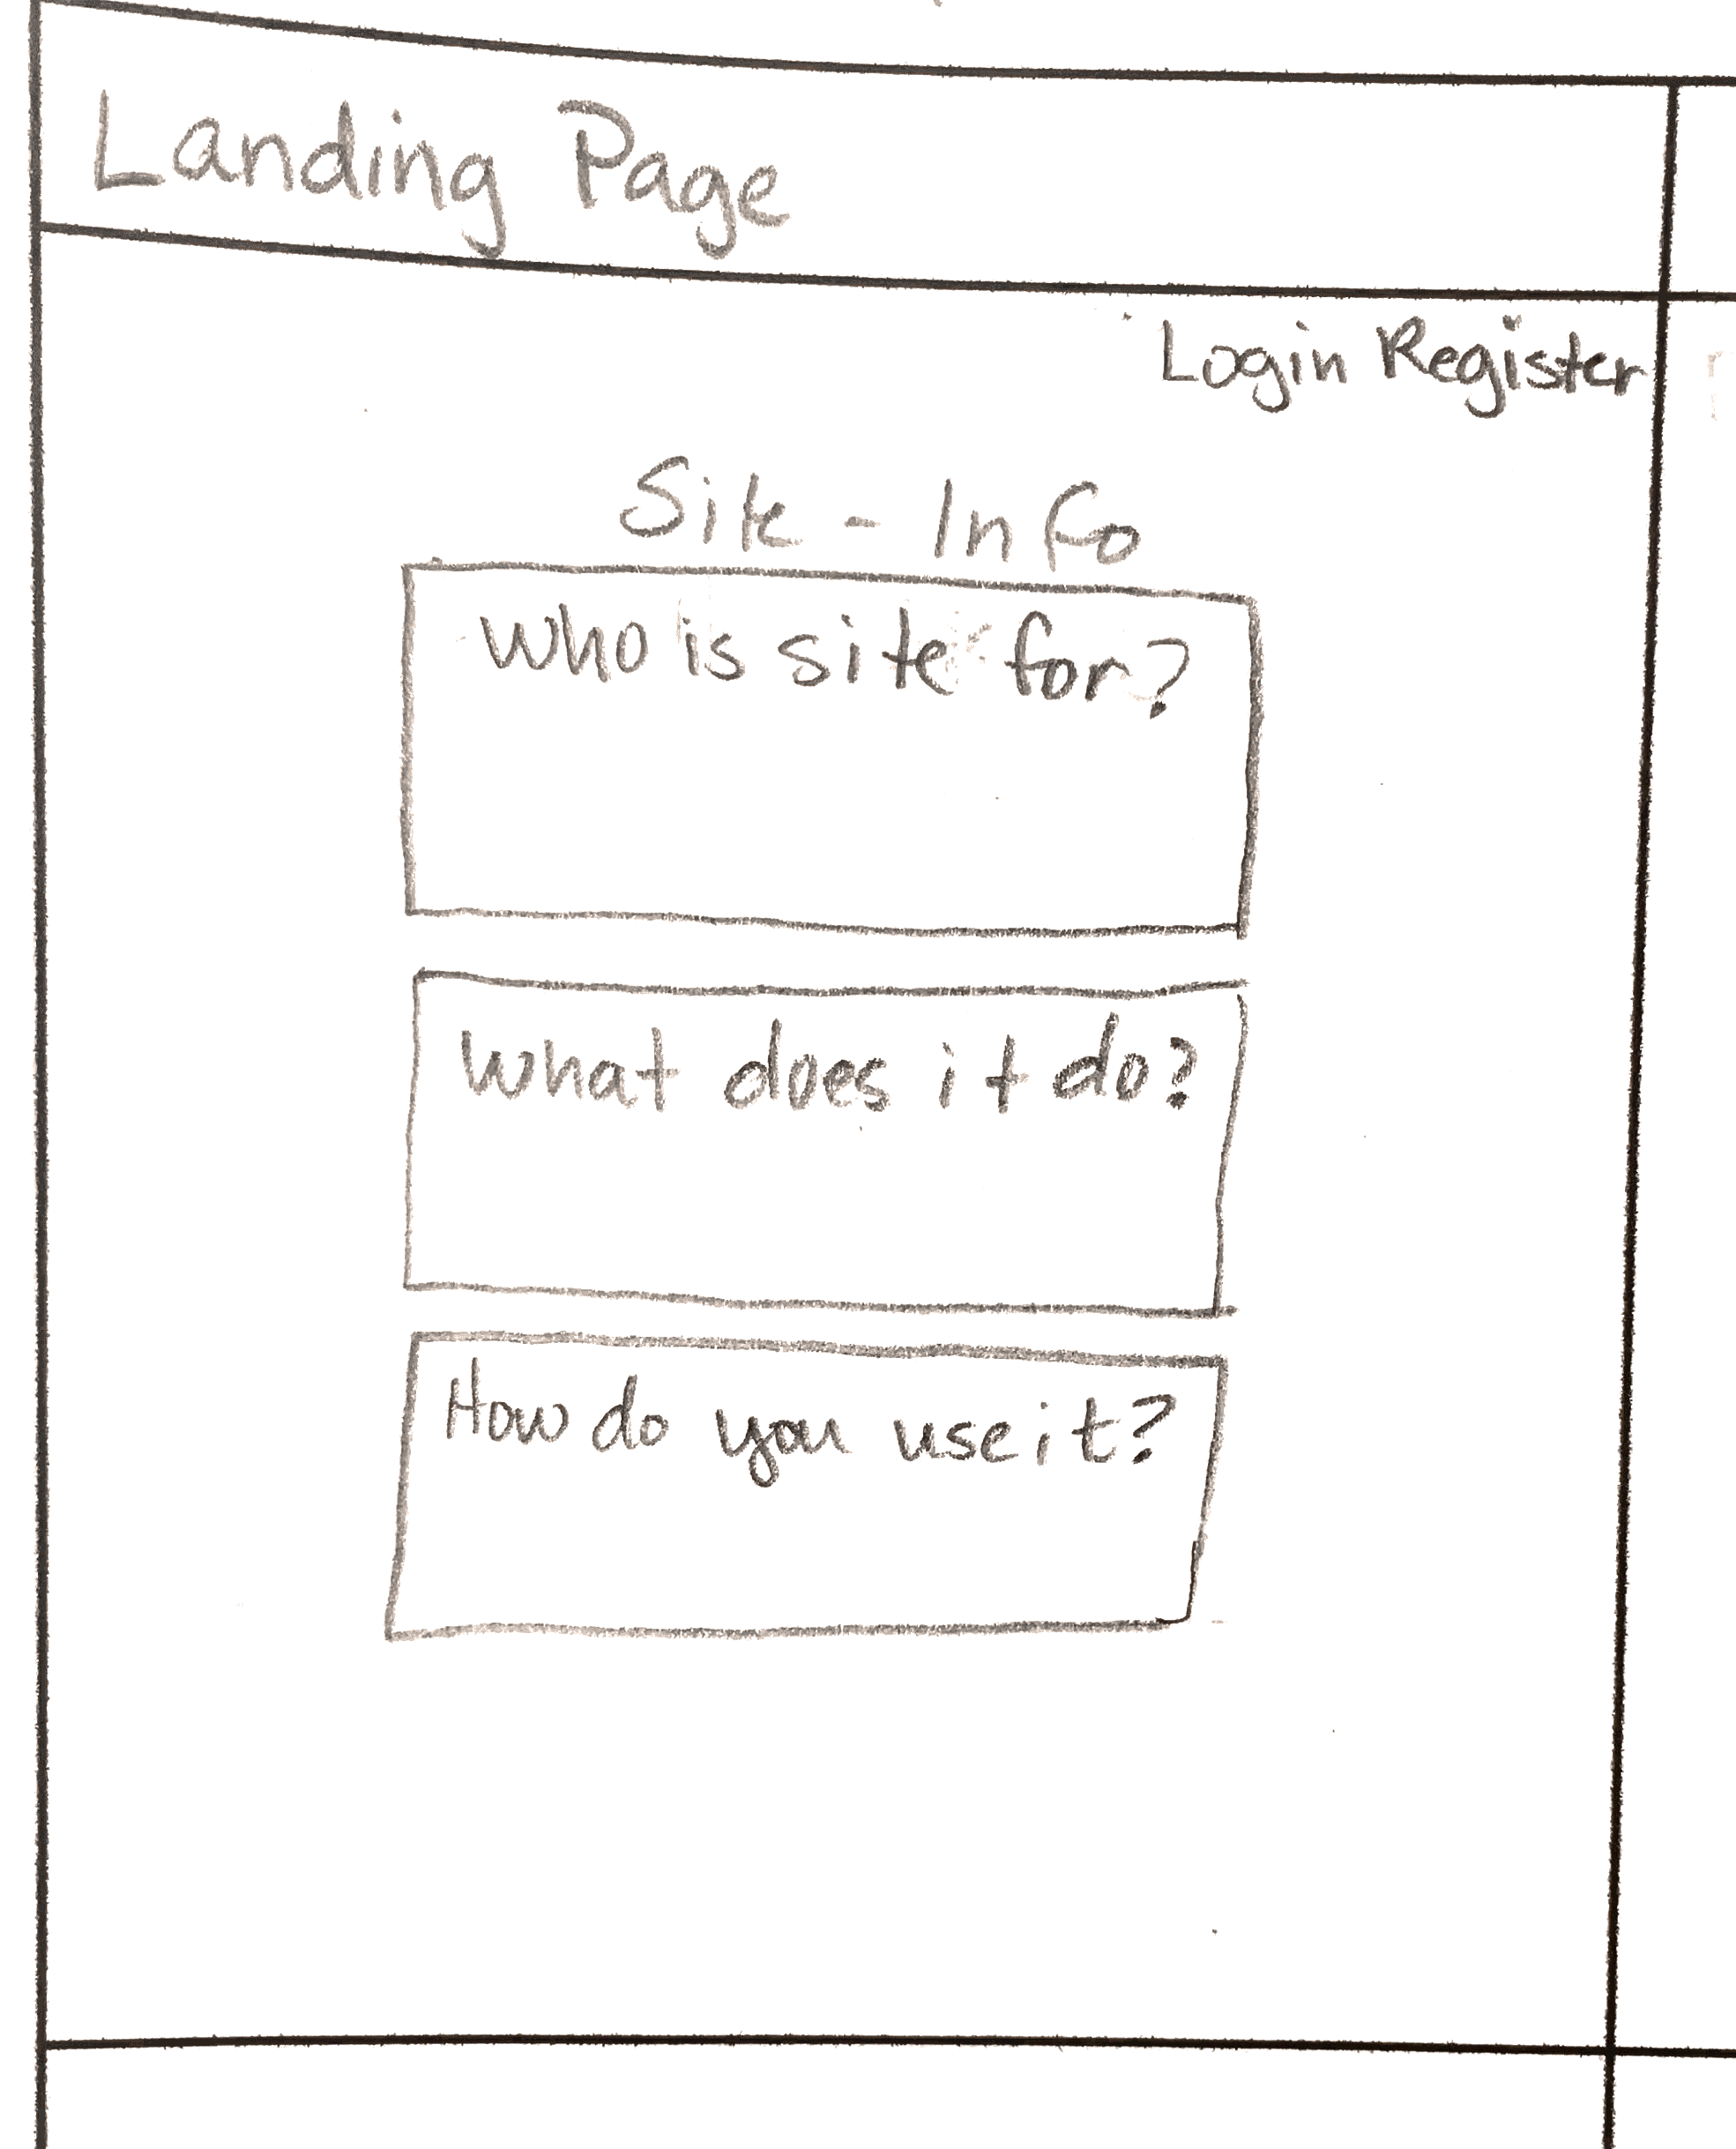 Landing Page
Login Register
Site - Info
Who is site for?
What does it do?
How do you use it?